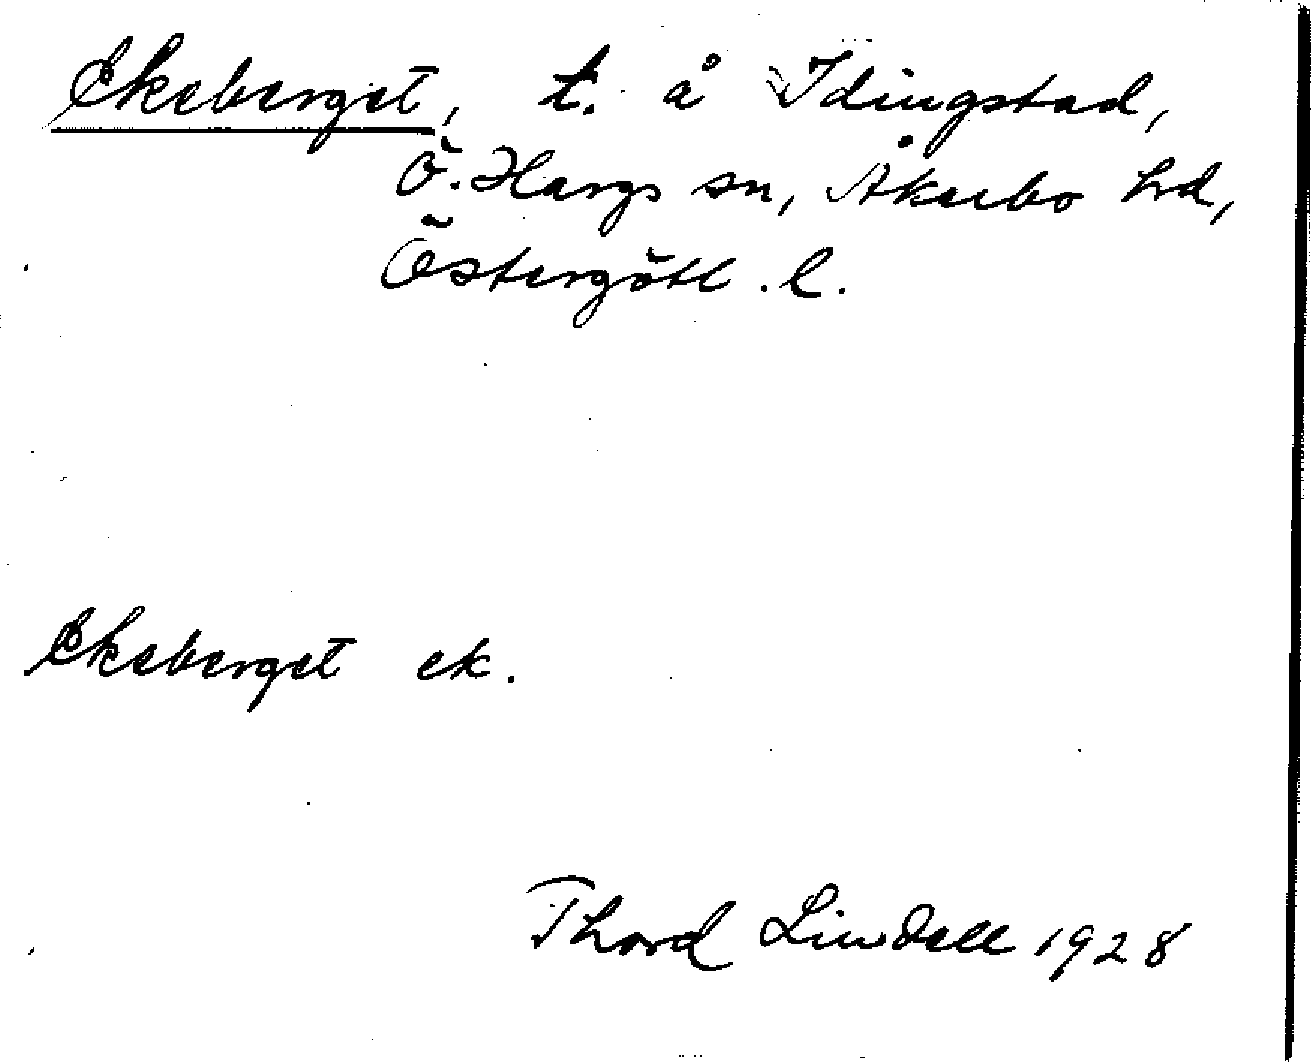 Ekeberget, t. å Idingstad,
Ö. Hargs sn, Åkerbo hd,
Östergötl. l.
Ekeberget ek.
Thord Lindell 1928